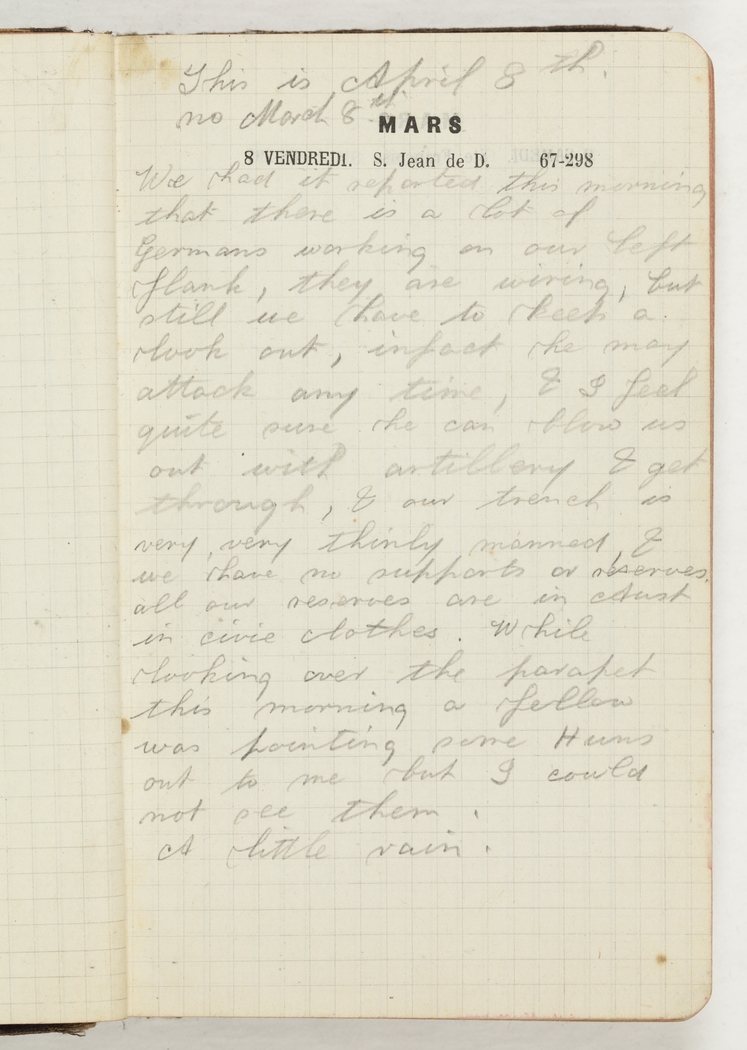 This is April 8th.
no March 8th.
MARS
8 VENDREDI. S. Jean de D. 67-298
We had it reported this morning
that there is a lot of
Germans working on our left
flank, they are wiring, but
still we have to keep a
look out, infact he may
attack any time, & I feel
quite sure he can blow us
out with artillery & get
through, & our trench is
very, very thinly manned, &
we have no supports or reserves.
all our reserves are in Aust
in civie clothes. While
looking over the parapet
this morning a fellow
was pointing some Huns
out to me but I could
not see them.
A little rain.